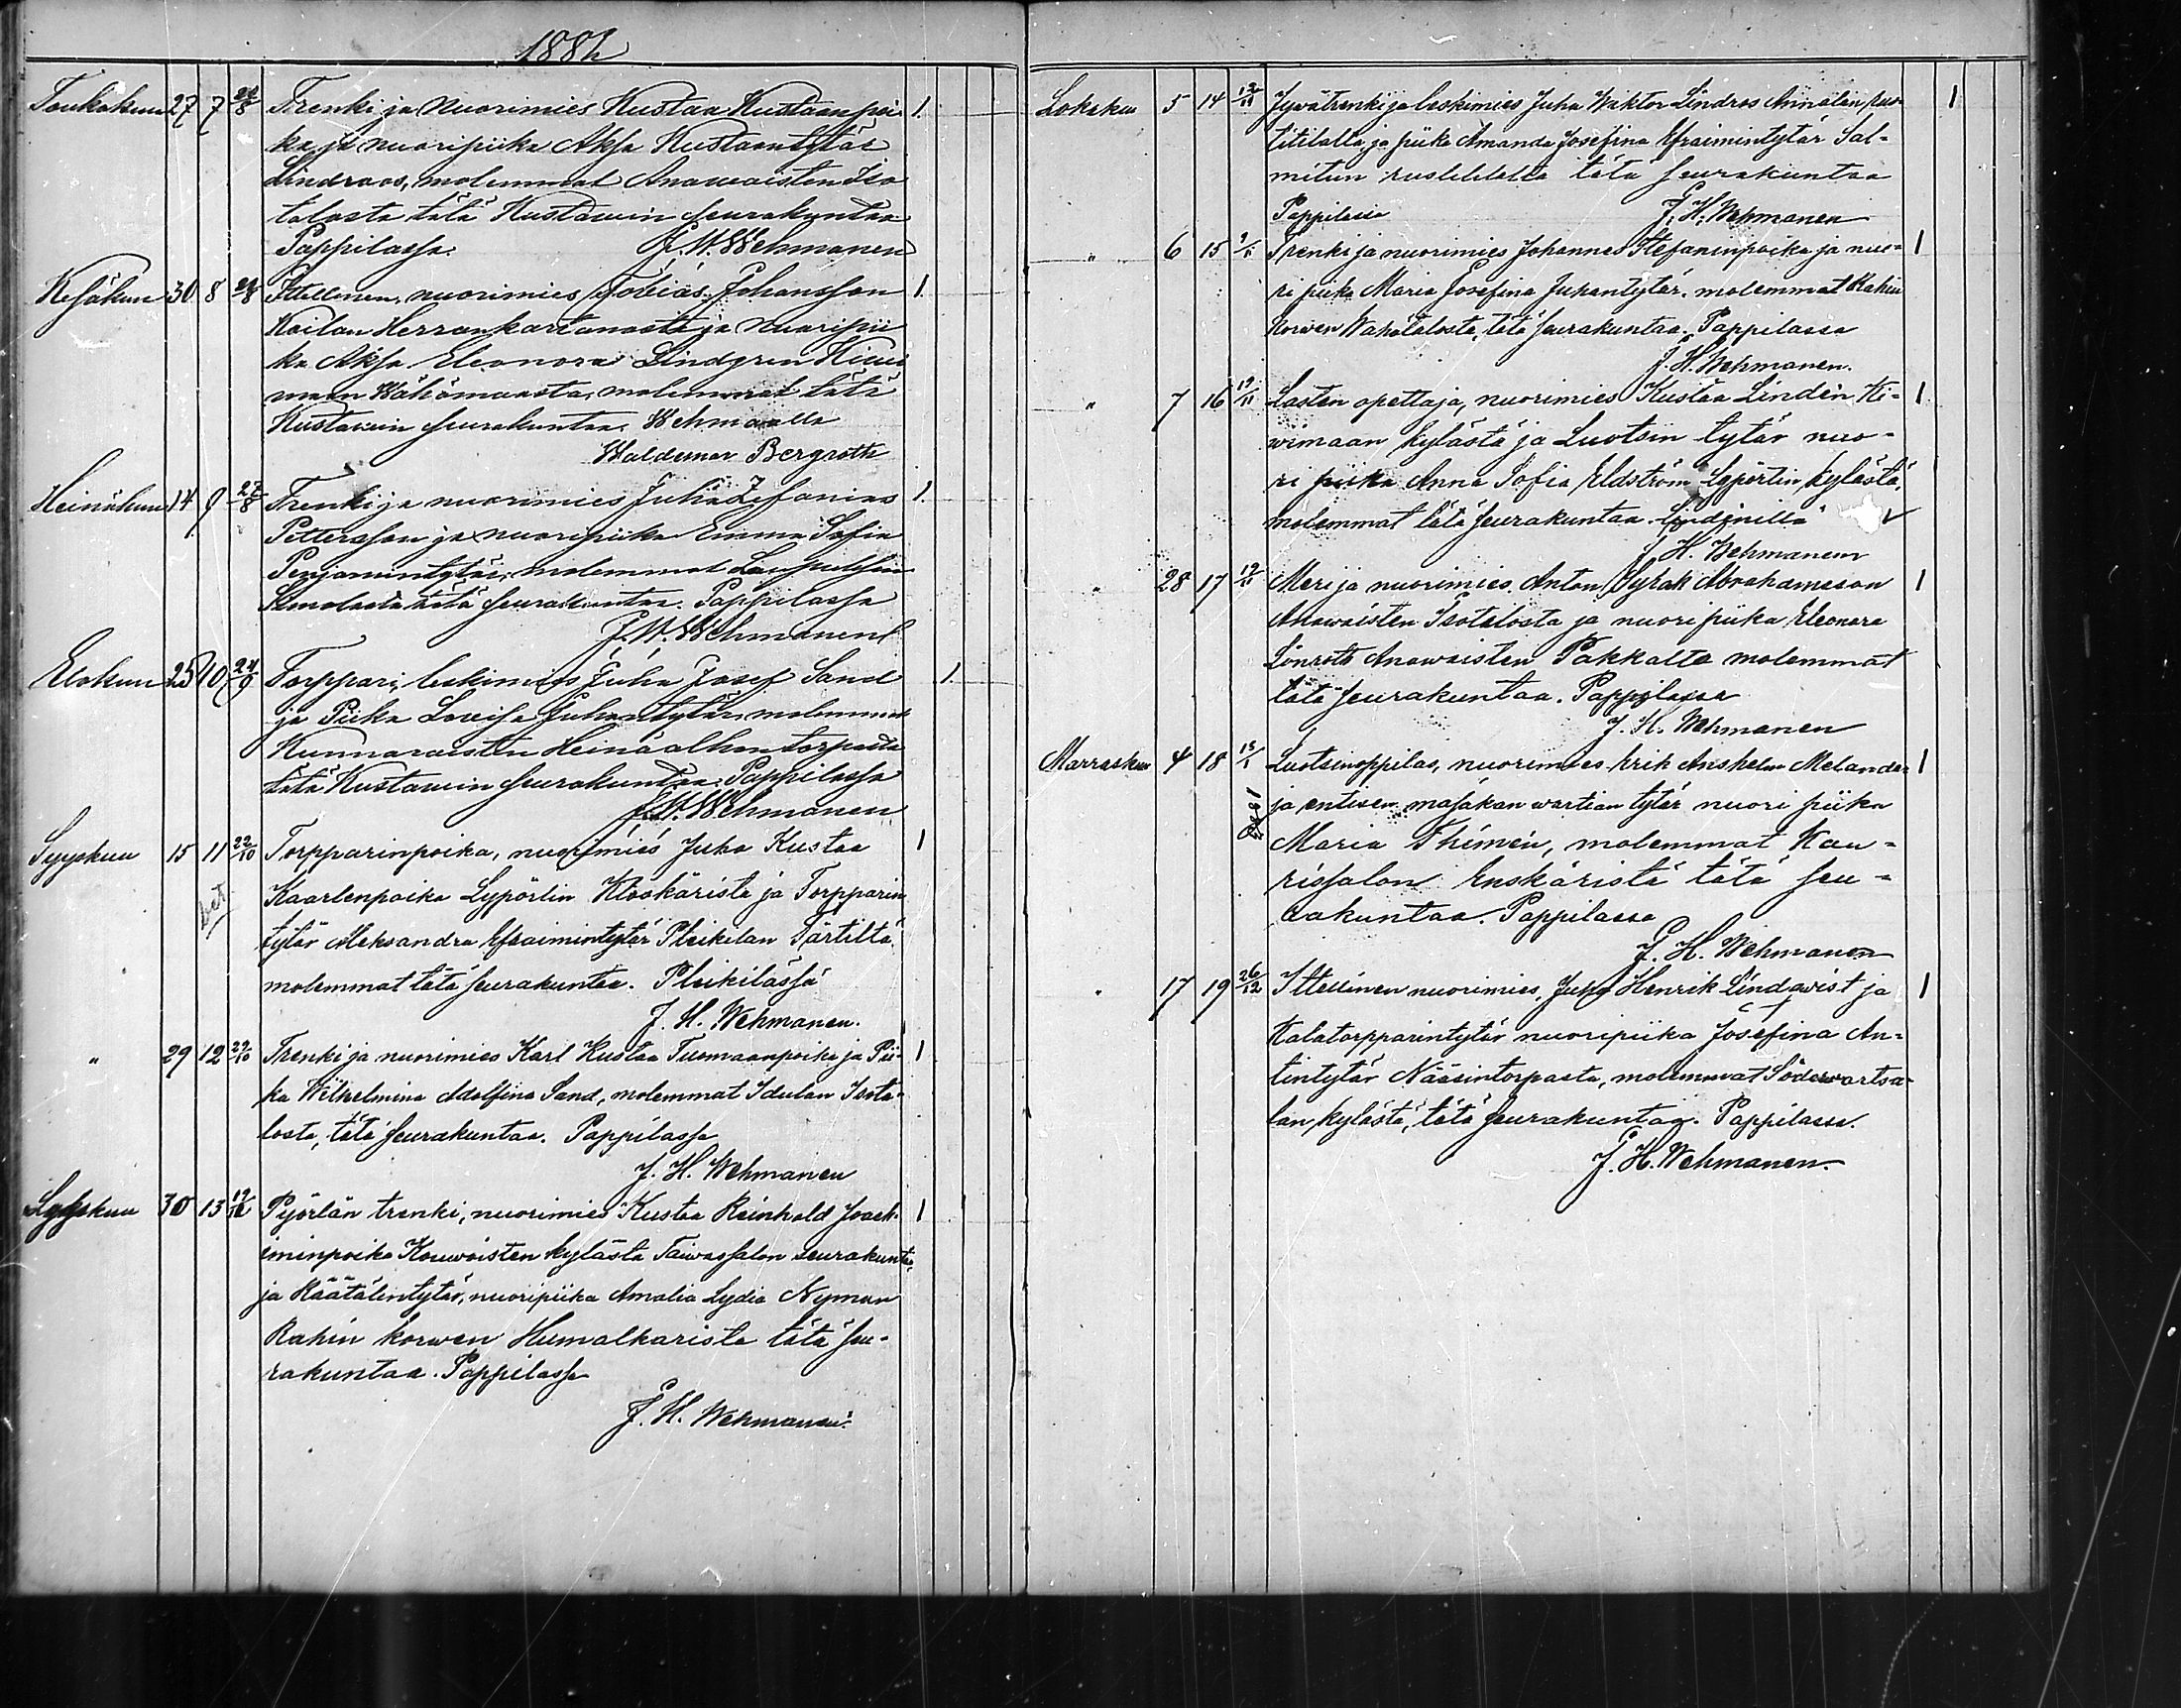 1882
Toukokuu 27 7 24/8 Trenki ja Nuorimies Kustaa Kustaanpoi- 1.
ka ja nuoripiika Aksa Kustaantytär
Lindroos, molemmat Anawaisten Iso
talosta tätä Kustawin seurakuntaa
Pappilassa. J. H. Wehmanen
Kesäkuu 30 8 24/8 Itsellinen, nuorimies Tobias Johansson 1.
Kailan Herrankartanosta ja nuoripii
ka Aksa Eleonora Lindgren Kiwi
maan Wähämaasta, molemmat tätä
Kustawin seurakuntaa Wehmaalla
Waldemar Bergroth
Heinäkuu 14 9 27/8 Trenki ja nuorimies Juha Zefanias 1.
Pettersson ja nuoripiika Emma Sofia
Penjamintytär, molemmat
tätä seurakuntaa. Pappilassa
J. H. Wehmanen
Elokuu 25 10 24/9 Torppari, leskimies Juha Josef Sand 1.
ja Piika Lovisa Juhantytär molemmat
Kunnaraisten torpasta
tätä Kustawin seurakuntaa. Pappilassa
J. H. Wehmanen
Syyskuu 15 11 22/10 Torpparinpoika, nuorimies Juha Kustaa 1
Kaarlenpoika Lypörtin Klookärista ja Torpparin
tytär Aleksandra Efraimintytär Pleikilan Tärtiltä,
molemmat tätä seurakuntaa. Pleikilässä
J. H. Wehmanen.
" 29 12 29/10 Trenki ja nuorimies Karl Kustaa Tuomaanpoika ja Pii- 1
ka Wilhelmina Adolfina Sand, molemmat Idulan Isota-
losta, tätä seurakuntaa. Pappilassa
J. H. Wehmanen
Syyskuu 30 13 Pyörlän trenki, nuorimies Kustaa Reinhold Joack- 1
iminpoika Kouwoisten kylästä Taiwassalon seurakuntaa,
ja Räätälintytär, nuoripiika Amalia Lydia Nyman
Rahin korwen Humalkarista tätä seu-
rakuntaa. Pappilassa
J. H. Wehmanen.
Lokakuu 5 14 12/11 Jywätrenki ja leskimies Juha Wiktor Lindros Annalan pus- 1
titilalla ja piika Amanda Josefina Efraimintytär Sal-
mitun tätä seurakuntaa
Pappilassa J. H. Wehmanen
" 6 15 Trenki ja nuorimies Johannes Stefaninpoika ja nuo- 1
ri piika Maria Josefina Juhantytär, molemmat Rahin
korwen Wahätalosta, tätä seurakuntaa. Pappilassa
J. H. Wehmanen.
" 7 16 19/11 Lasten opettaja, nuorimies Kustaa Lindén Ki- 1
wimaan kylästä ja Luotsin tytär nuo-
ri piika Anna Sofia Eldström Lypörtin kylästä,
molemmat tätä seurakuntaa.
J. H. Wehmanen
" 28 17 19/11 Meri ja nuorimies Anton Syrak Abrahamsson 1
Anawaisten Isotalosta ja nuori piika Eleonora
Lönroth Anawaisten Pakkalta molemmat
tätä seurakuntaa. Pappilassa
J. H. Wehmanen
Marraskuu 4 18 Luotsinoppilas, nuorimies Erik Anshelm Melander 1
ja entisen majakan wartian tytär nuori piika
Maria Thimén, molemmat Kau-
rissalon Enskäristä tätä seu-
rakuntaa. Pappilassa
J. H. Wehmanen
" 17 19 26/12 Itsellinen nuorimies, Juho Henrik Lindqwist ja 1
Kalatorpparintytär nuoripiika Josefina An-
tintytär Nääsintorpasta, molemmat Söderwartsa-
lan kylästä, tätä seurakuntaa. Pappilassa.
J. H. Wehmanen.